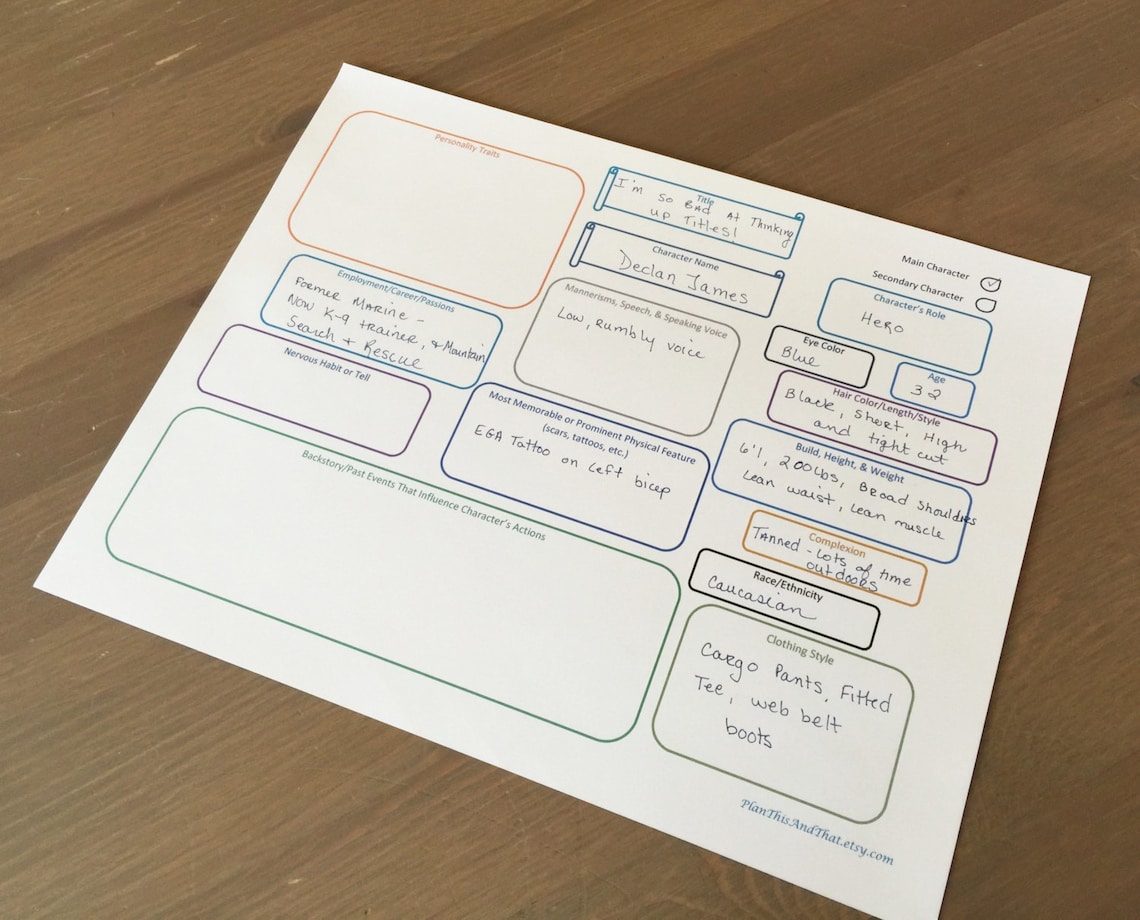 Personality Traits
Title
I'm so BAD At Thinking
up Titles!
Character Name
Declan James
Main Character
Secondary Character
Character's Role
Hero
Employment/Career/Passions
Former Marine -
Now K-9 trainer, & Mountain
Search + Rescue
Mannerisms, Speech, & Speaking Voice
Low, Rumbly voice
Eye Color
Blue
Age
32
Nervous Habit or Tell
Hair Color/Length/Style
Black, Short, High
and tight cut
Most Memorable or Prominent Physical Feature
(scars, tattoos, etc.)
EGA Tattoo on Left bicep
Build, Height, & Weight
6'1, 200Lbs, Broad shoulders
Lean waist, Lean muscle
Backstory/Past Events That Influence Character's Actions
Complexion
Tanned - Lots of time
outdoors
Race/Ethnicity
Caucasian
Clothing Style
Cargo Pants, Fitted
Tee, web belt
boots
PlanThisAndThat.etsy.com